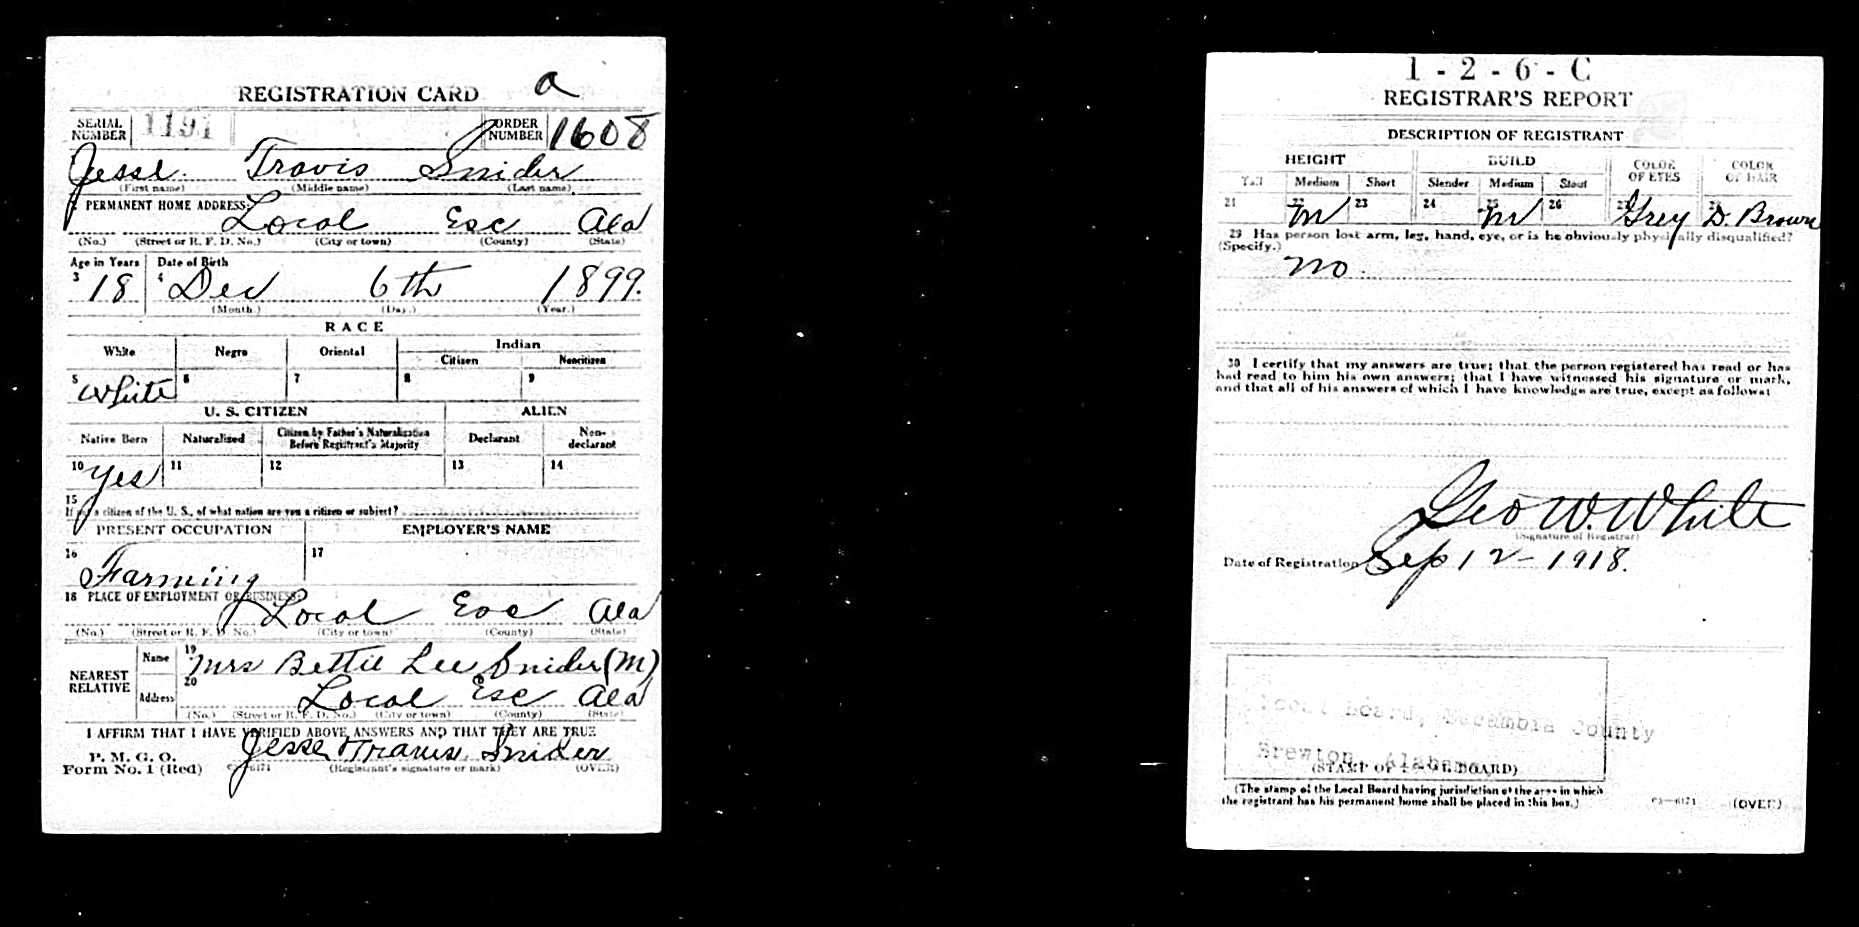 REGISTRATION CARD a
SERIAL NUMBER 1191 ORDER NUMBER 1608
Jesse Travis Snider
(First name) (Middle name) (Last name)
PERMANENT HOME ADDRESS:
Local Esc Ala
(No.) (Street or R. F. D. No.) (City or town) (County) (State)
Age in Years Date of Birth
3 18 4 Dec 6th 1899.
(Month.) (Day.) (Year.)
RACE
White Negro Oriental Indian
Citizen Noncitizen
5 White 6 7 8 9
U. S. CITIZEN ALIEN
Native Born Naturalized Citizen by Father's Naturalization Before Registrant's Majority Declarant Non-declarant
10 Yes 11 12 13 14
15
If not a citizen of the U. S., of what nation are you a citizen or subject?
PRESENT OCCUPATION EMPLOYER'S NAME
16 Farming 17
18 PLACE OF EMPLOYMENT OR BUSINESS:
Local Esc Ala
(No.) (Street or R. F. D. No.) (City or town) (County) (State)
NEAREST RELATIVE Name 19 Mrs Bettie Lee Snider (M)
Address 20 Local Esc Ala
(No.) (Street or R. F. D. No.) (City or town) (County) (State)
I AFFIRM THAT I HAVE VERIFIED ABOVE ANSWERS AND THAT THEY ARE TRUE
P. M. G. O.
Form No. 1 (Red) Jesse Travis Snider
(Registrant's signature or mark) (OVER)
1-2-6-C
REGISTRAR'S REPORT
DESCRIPTION OF REGISTRANT
HEIGHT BUILD COLOR OF EYES COLOR OF HAIR
Tall Medium Short Slender Medium Stout
21 22 M 23 24 25 M 26 27 Grey 28 D. Brown
29 Has person lost arm, leg, hand, eye, or is he obviously physically disqualified?
(Specify.)
no.
30 I certify that my answers are true; that the person registered has read or has
had read to him his own answers; that I have witnessed his signature or mark,
and that all of his answers of which I have knowledge are true, except as follows:
Geo W. White
(Signature of Registrar)
Date of Registration Sep 12 - 1918.
Local Board, Escambia County
Brewton, Alabama
(STAMP OF LOCAL BOARD)
(The stamp of the Local Board having jurisdiction of the area in which
the registrant has his permanent home shall be placed in this box.) 03—6171 (OVER)